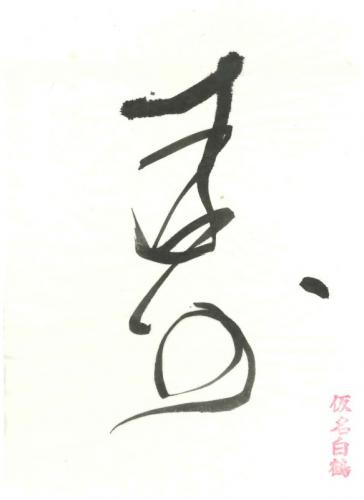 寿
仮名白鶴